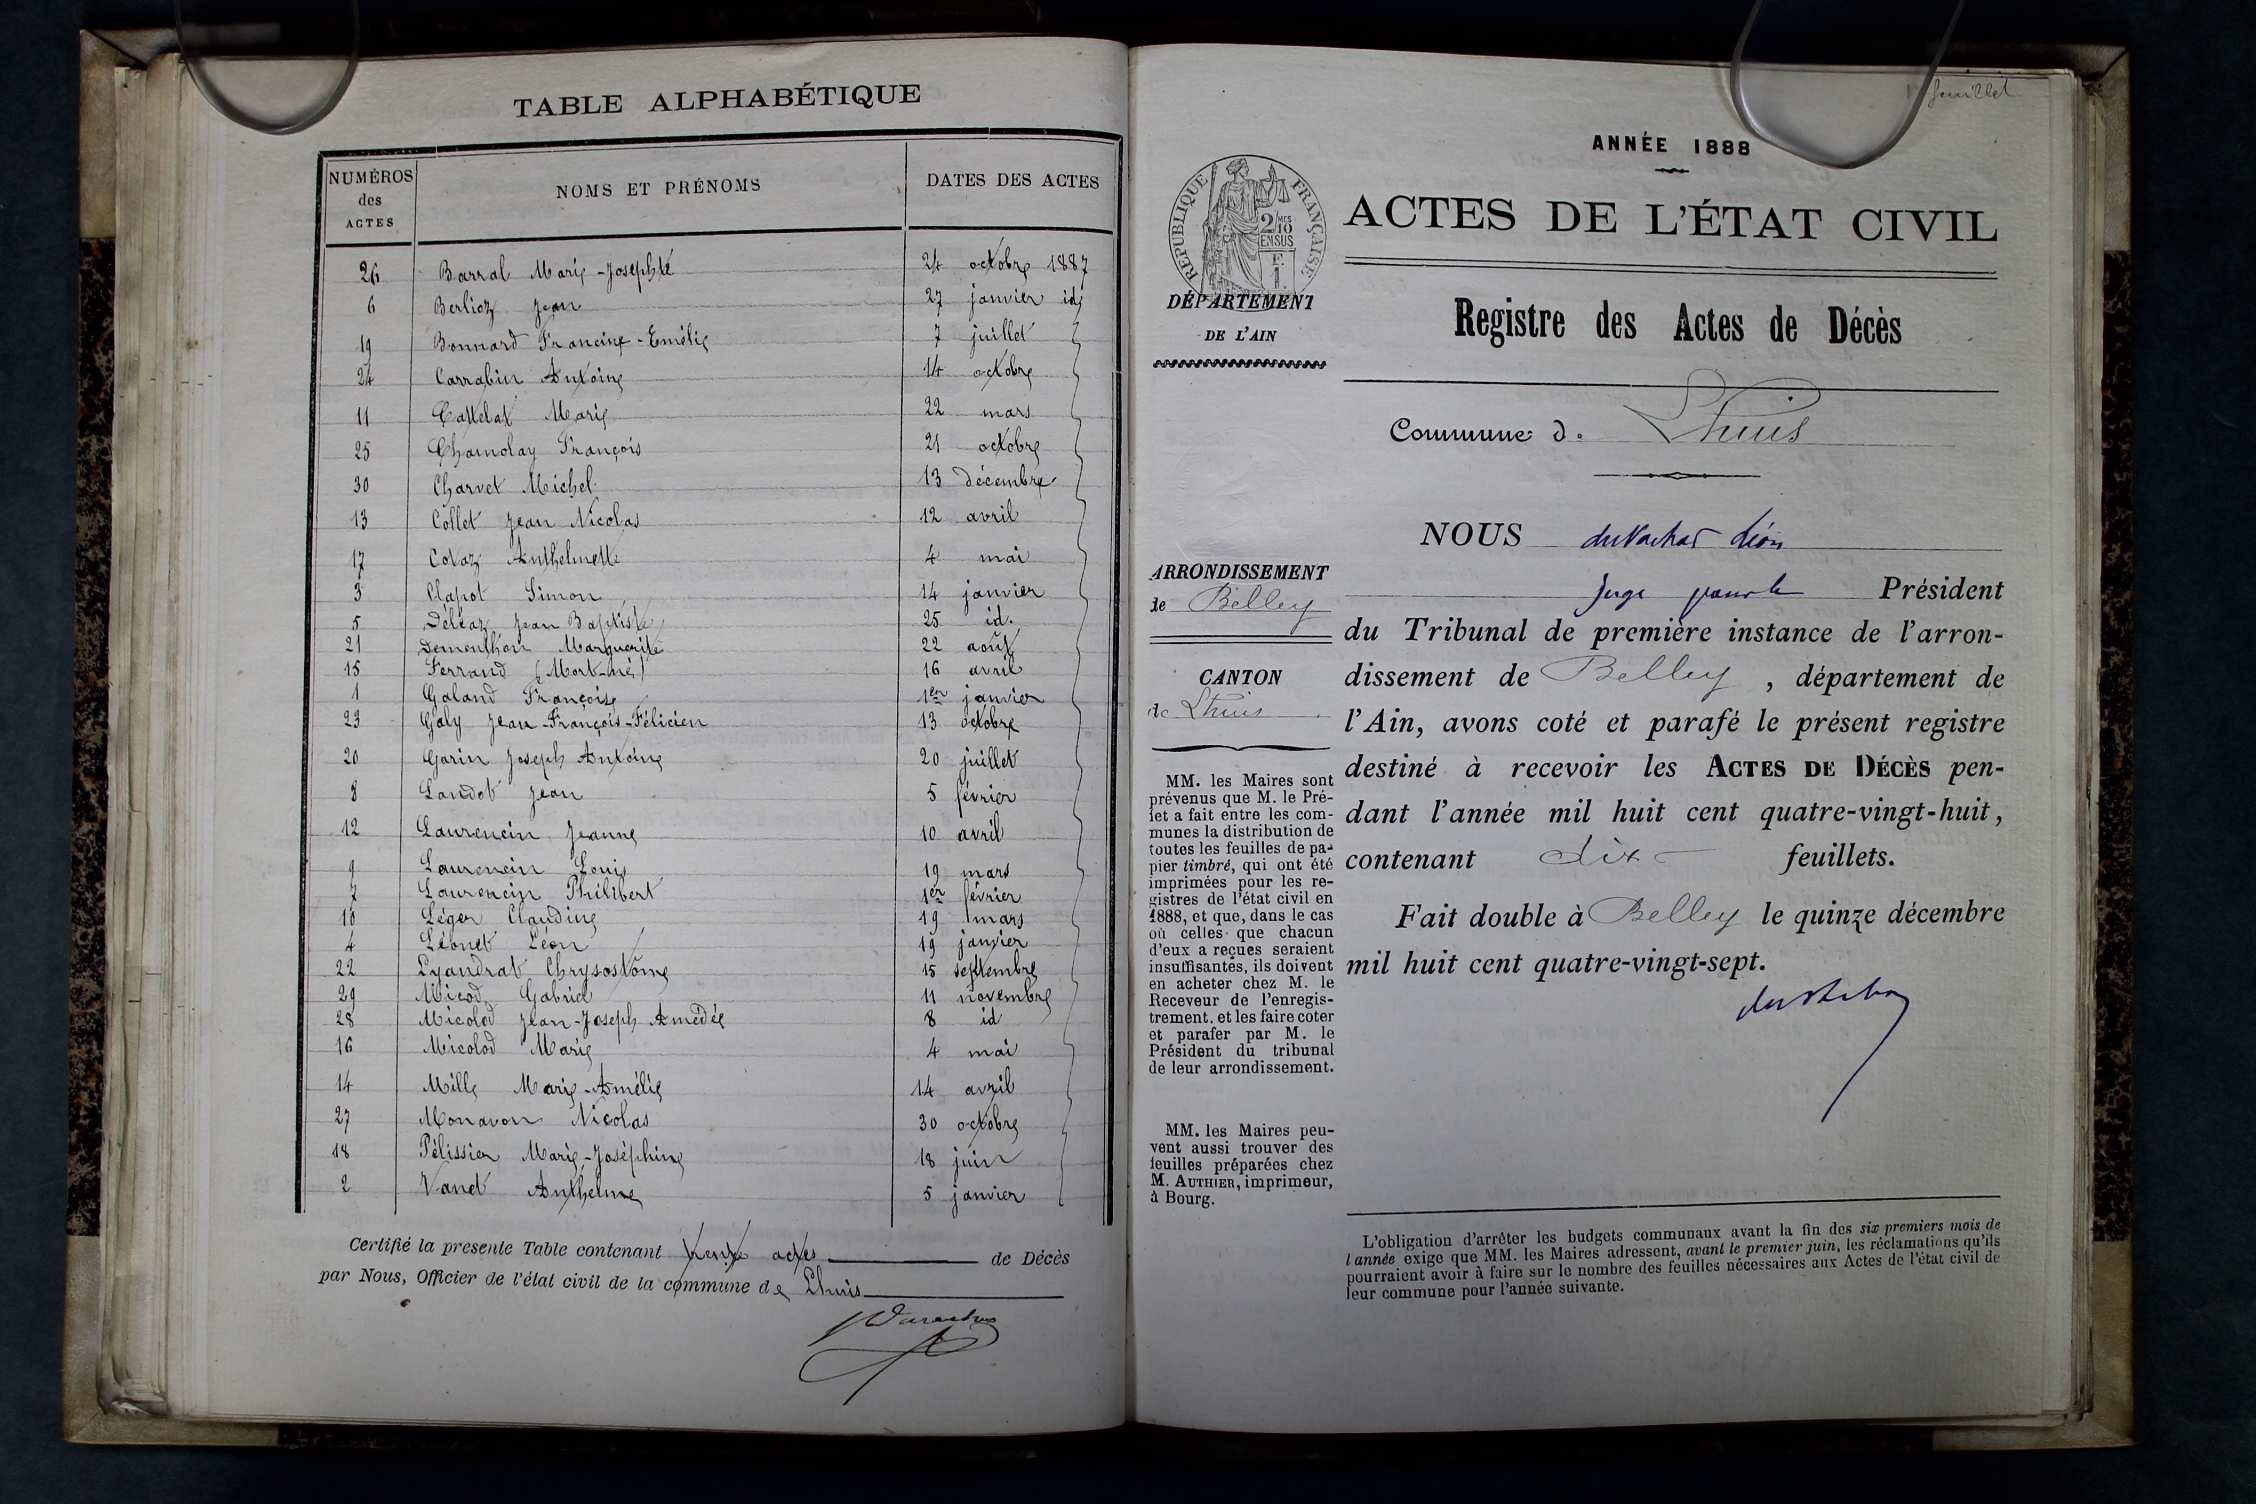 TABLE ALPHABÉTIQUE
NUMÉROS des ACTES NOMS ET PRÉNOMS DATES DES ACTES
26 Barral Marie-Josephte 24 octobre 1887
6 Berlioz Jean 27 janvier id
19 Bonnard Francine-Emélie 7 juillet
24 Carrabin Antoine 14 octobre
11 Castelat Marie 22 mars
25 Chamolay François 21 octobre
30 Charvet Michel 13 décembre
13 Collet Jean Nicolas 12 avril
17 Covaz Anthelmette 4 mai
3 Clapot Simon 14 janvier
5 Déléaz Jean Baptiste 25 id.
21 Dementhon Marguerite 22 août
15 Ferrand (Mort-né) 16 avril
1 Galand Françoise 1er janvier
23 Galy Jean-François-Félicien 13 octobre
20 Garin Joseph Antoine 20 juillet
8 Landot Jean 5 février
12 Laurencin Jeanne 10 avril
9 Laurencin Louis 19 mars
7 Laurencin Philibert 1er février
10 Léger Claudine 19 mars
4 Léonet Léon 19 janvier
22 Lyandrat Chrysostôme 15 septembre
29 Micod Gabriel 11 novembre
28 Micolod Jean-Joseph Amédée 8 id
16 Micolod Marie 4 mai
14 Mille Marie-Amélie 14 avril
27 Monavon Nicolas 30 octobre
18 Pélissier Marie-Joséphine 18 juin
2 Vanet Anthelme 5 janvier
Certifié la presente Table contenant trente actes de Décès
par Nous, Officier de l'état civil de la commune de Lhuis
feuillet
ANNÉE 1888
RÉPUBLIQUE FRANÇAISE
2/10 MES
EN SUS
F.
1
ACTES DE L'ÉTAT CIVIL
DÉPARTEMENT
DE L'AIN
Registre des Actes de Décès
Commune de Lhuis
ARRONDISSEMENT
de Belley
CANTON
de Lhuis
MM. les Maires sont
prévenus que M. le Pré-
fet a fait entre les com-
munes la distribution de
toutes les feuilles de pa-
pier timbré, qui ont été
imprimées pour les re-
gistres de l'état civil en
1888, et que, dans le cas
où celles que chacun
d'eux a reçues seraient
insuffisantes, ils doivent
en acheter chez M. le
Receveur de l'enregis-
trement, et les faire coter
et parafer par M. le
Président du tribunal
de leur arrondissement.
MM. les Maires peu-
vent aussi trouver des
feuilles préparées chez
M. AUTHIER, imprimeur,
à Bourg.
NOUS Léon
Juge pour le Président
du Tribunal de première instance de l'arron-
dissement de Belley, département de
l'Ain, avons coté et parafé le présent registre
destiné à recevoir les ACTES DE DÉCÈS pen-
dant l'année mil huit cent quatre-vingt-huit,
contenant dix feuillets.
Fait double à Belley le quinze décembre
mil huit cent quatre-vingt-sept.
L'obligation d'arrêter les budgets communaux avant la fin des six premiers mois de
l'année exige que MM. les Maires adressent, avant le premier juin, les réclamations qu'ils
pourraient avoir à faire sur le nombre des feuilles nécessaires aux Actes de l'état civil de
leur commune pour l'année suivante.